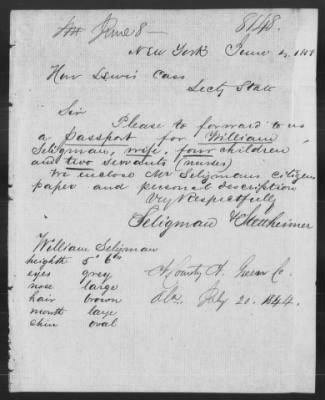 June 8 8148.
New York June 4, 185
Hon Lewis Cass
Secty State
Sir
Please to forward to us
a Passport for William
Seligman, wife, four children
and two servants (nurses)
We enclose Mr Seligmans citizens
paper and personal description
Very Respectfully
Seligman & Stettheimer
William Seligman
heighth 5' 6
eyes grey
nose large
hair brown
mouth laye
chin oval
County Green Co.
Ala. July 20. 1844.